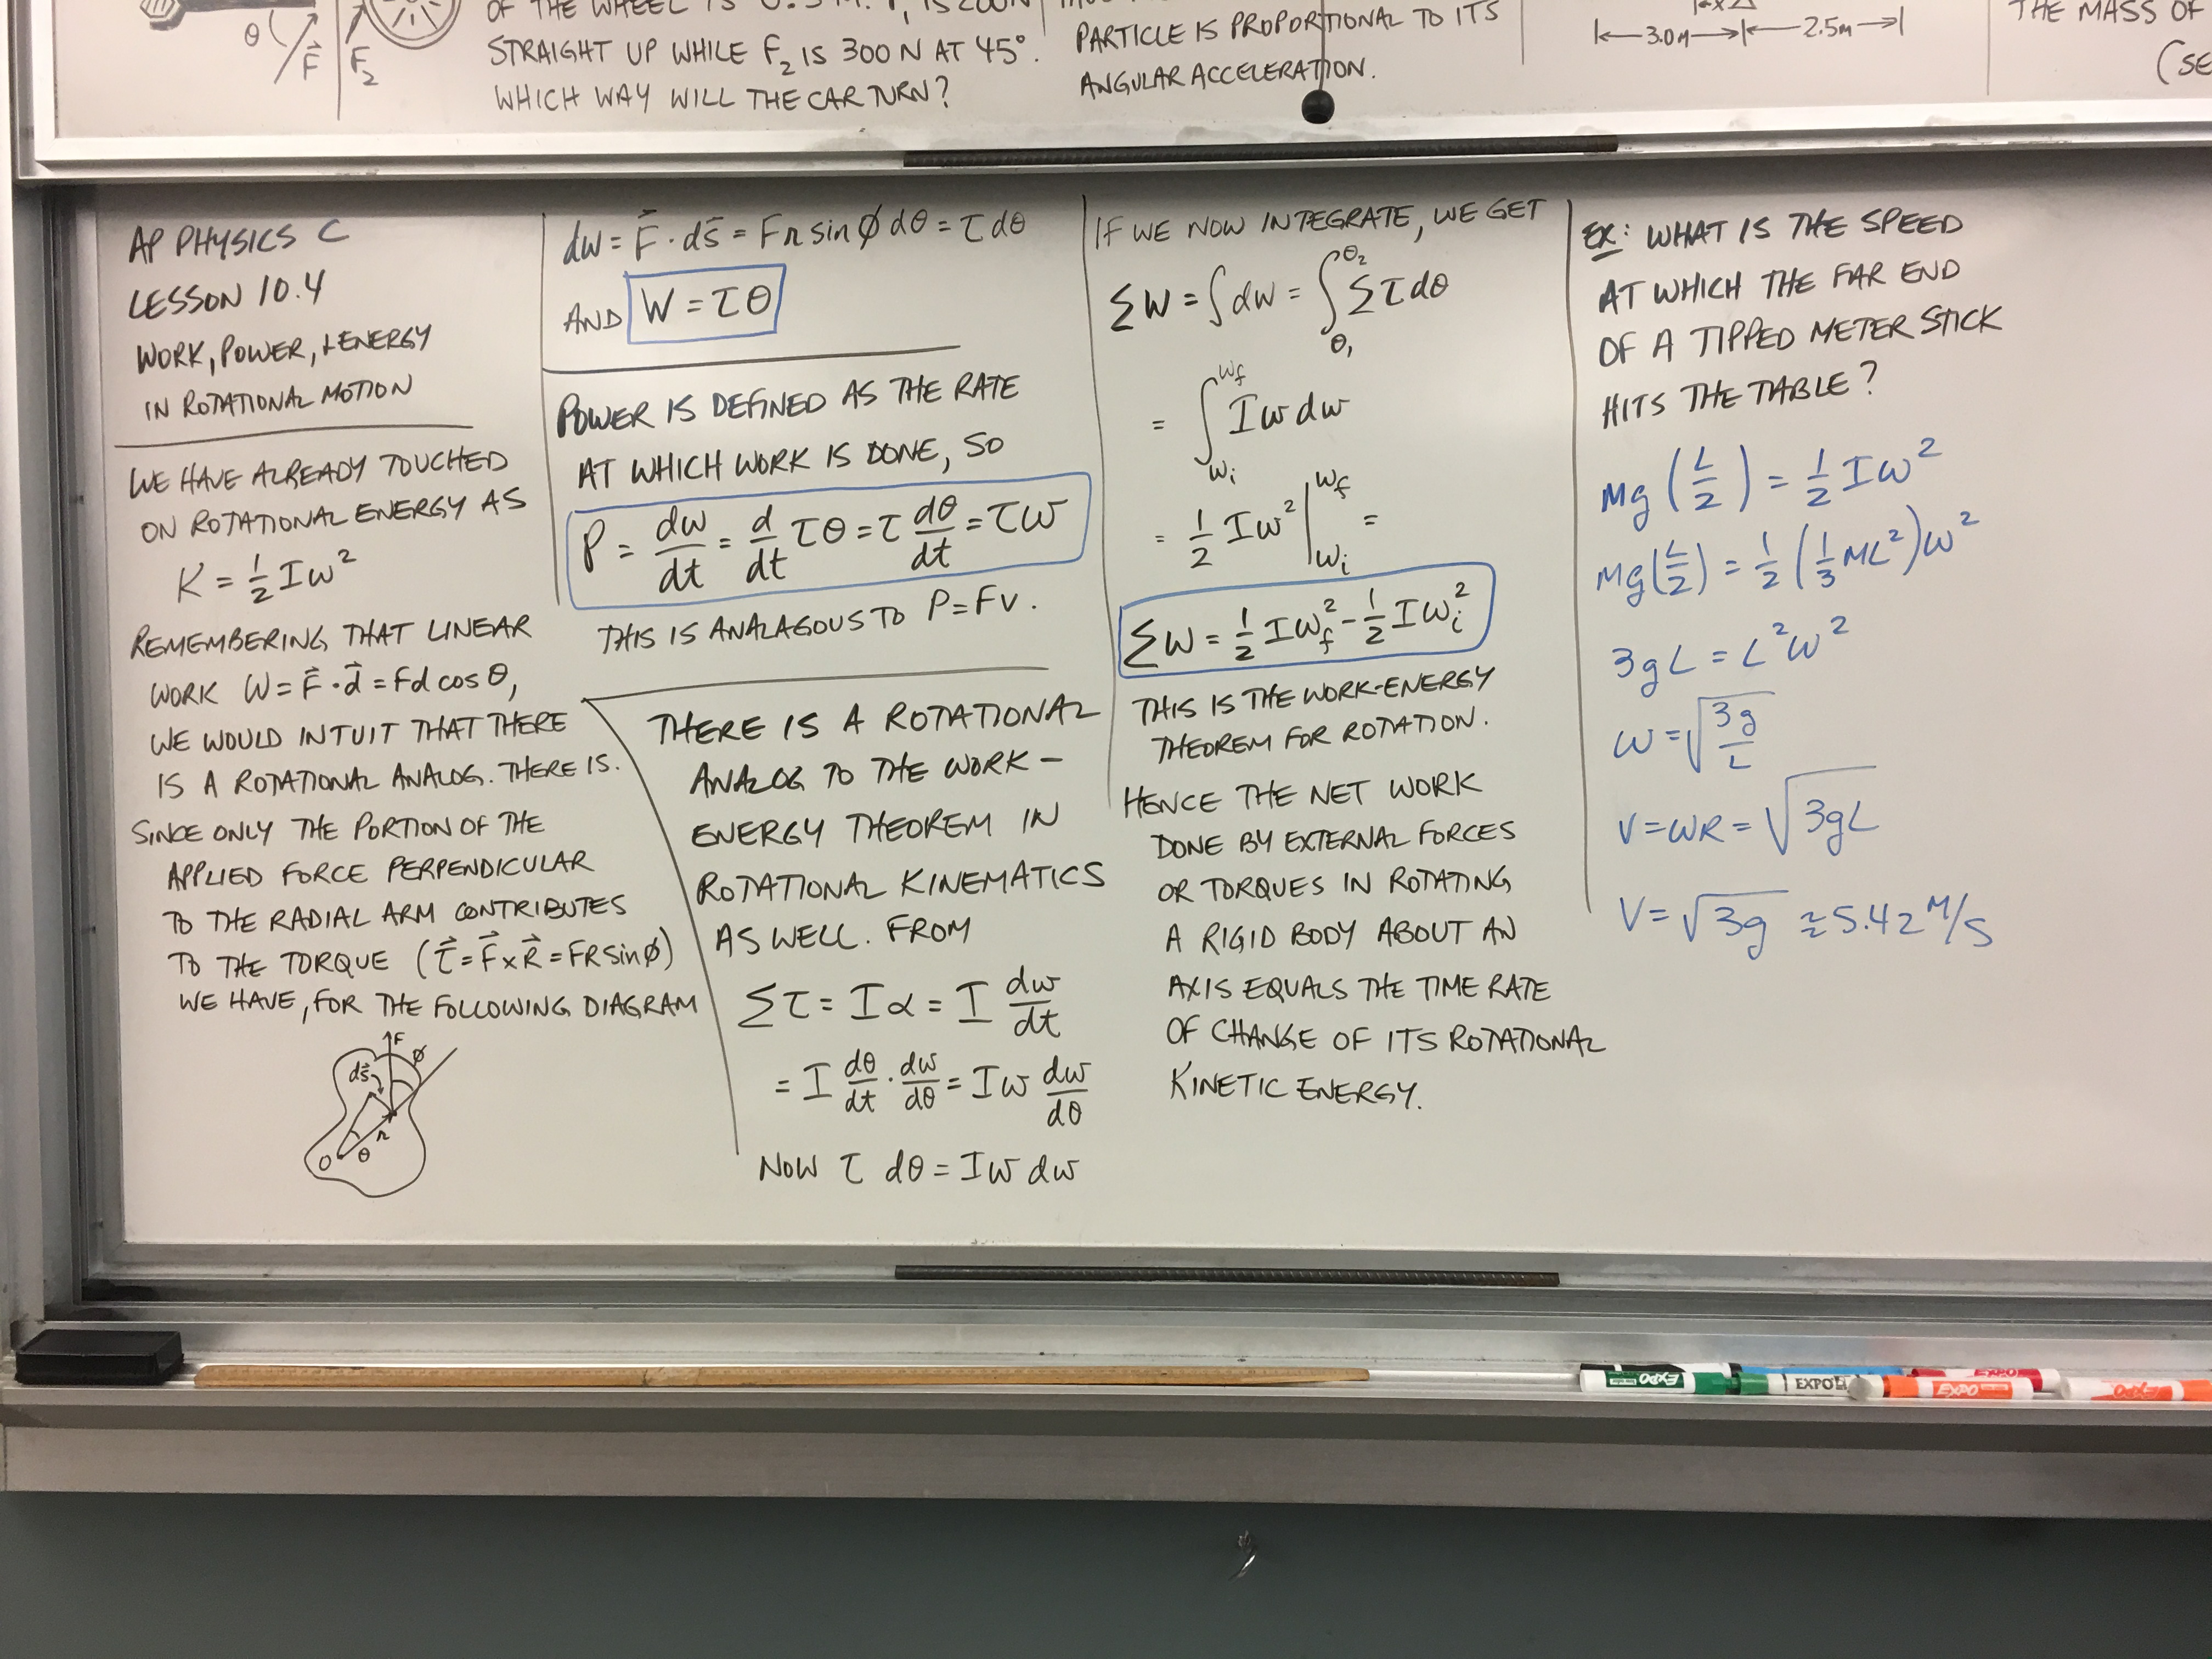 θ
F⃗
F₂
OF THE WHEEL IS
STRAIGHT UP WHILE F₂ IS 300 N AT 45°.
WHICH WAY WILL THE CAR TURN?
PARTICLE IS PROPORTIONAL TO ITS
ANGULAR ACCELERATION.
X
3.0M
2.5M
THE MASS OF
(SE
AP PHYSICS C
LESSON 10.4
WORK, POWER, + ENERGY
IN ROTATIONAL MOTION
WE HAVE ALREADY TOUCHED
ON ROTATIONAL ENERGY AS
K = 1/2 Iω²
REMEMBERING THAT LINEAR
WORK W = F⃗ · d⃗ = Fd cos θ,
WE WOULD INTUIT THAT THERE
IS A ROTATIONAL ANALOG. THERE IS.
SINCE ONLY THE PORTION OF THE
APPLIED FORCE PERPENDICULAR
TO THE RADIAL ARM CONTRIBUTES
TO THE TORQUE (τ⃗ = F⃗ × R⃗ = FR sin ϕ)
WE HAVE, FOR THE FOLLOWING DIAGRAM
F
ϕ
ds⃗
r
O θ
dW = F⃗ · ds⃗ = Fr sin ϕ dθ = τ dθ
AND W = τθ
POWER IS DEFINED AS THE RATE
AT WHICH WORK IS DONE, SO
P = dW/dt = d/dt τθ = τ dθ/dt = τω
THIS IS ANALAGOUS TO P = FV.
THERE IS A ROTATIONAL
ANALOG TO THE WORK-
ENERGY THEOREM IN
ROTATIONAL KINEMATICS
AS WELL. FROM
Στ = Iα = I dω/dt
= I dθ/dt · dω/dθ = Iω dω/dθ
NOW τ dθ = Iω dω
IF WE NOW INTEGRATE, WE GET
ΣW = ∫dW = ∫_θ₁^θ₂ Στ dθ
= ∫_ωi^ωf Iω dω
= 1/2 Iω² |_ωi^ωf =
ΣW = 1/2 Iωf² - 1/2 Iωi²
THIS IS THE WORK-ENERGY
THEOREM FOR ROTATION.
HENCE THE NET WORK
DONE BY EXTERNAL FORCES
OR TORQUES IN ROTATING
A RIGID BODY ABOUT AN
AXIS EQUALS THE TIME RATE
OF CHANGE OF ITS ROTATIONAL
KINETIC ENERGY.
EX: WHAT IS THE SPEED
AT WHICH THE FAR END
OF A TIPPED METER STICK
HITS THE TABLE?
Mg (L/2) = 1/2 Iω²
Mg (L/2) = 1/2 (1/3 ML²) ω²
3gL = L²ω²
ω = √(3g/L)
V = ωR = √(3gL)
V = √3g ≅ 5.42 M/S
EXPO
EXPO
EXPO
EXPO
EXPO